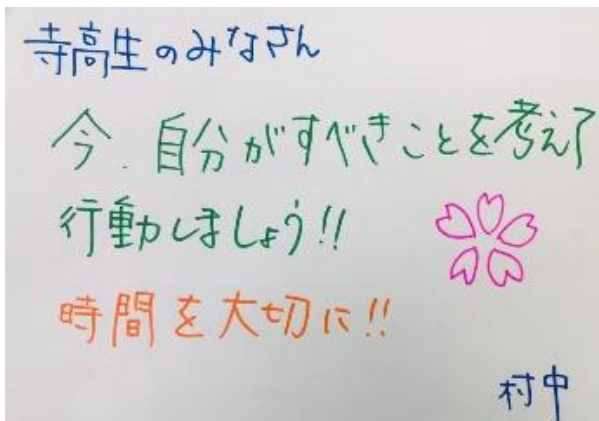 寺高生のみなさん
今、自分がすべきことを考えて
行動しましょう!!
時間を大切に!!
村中